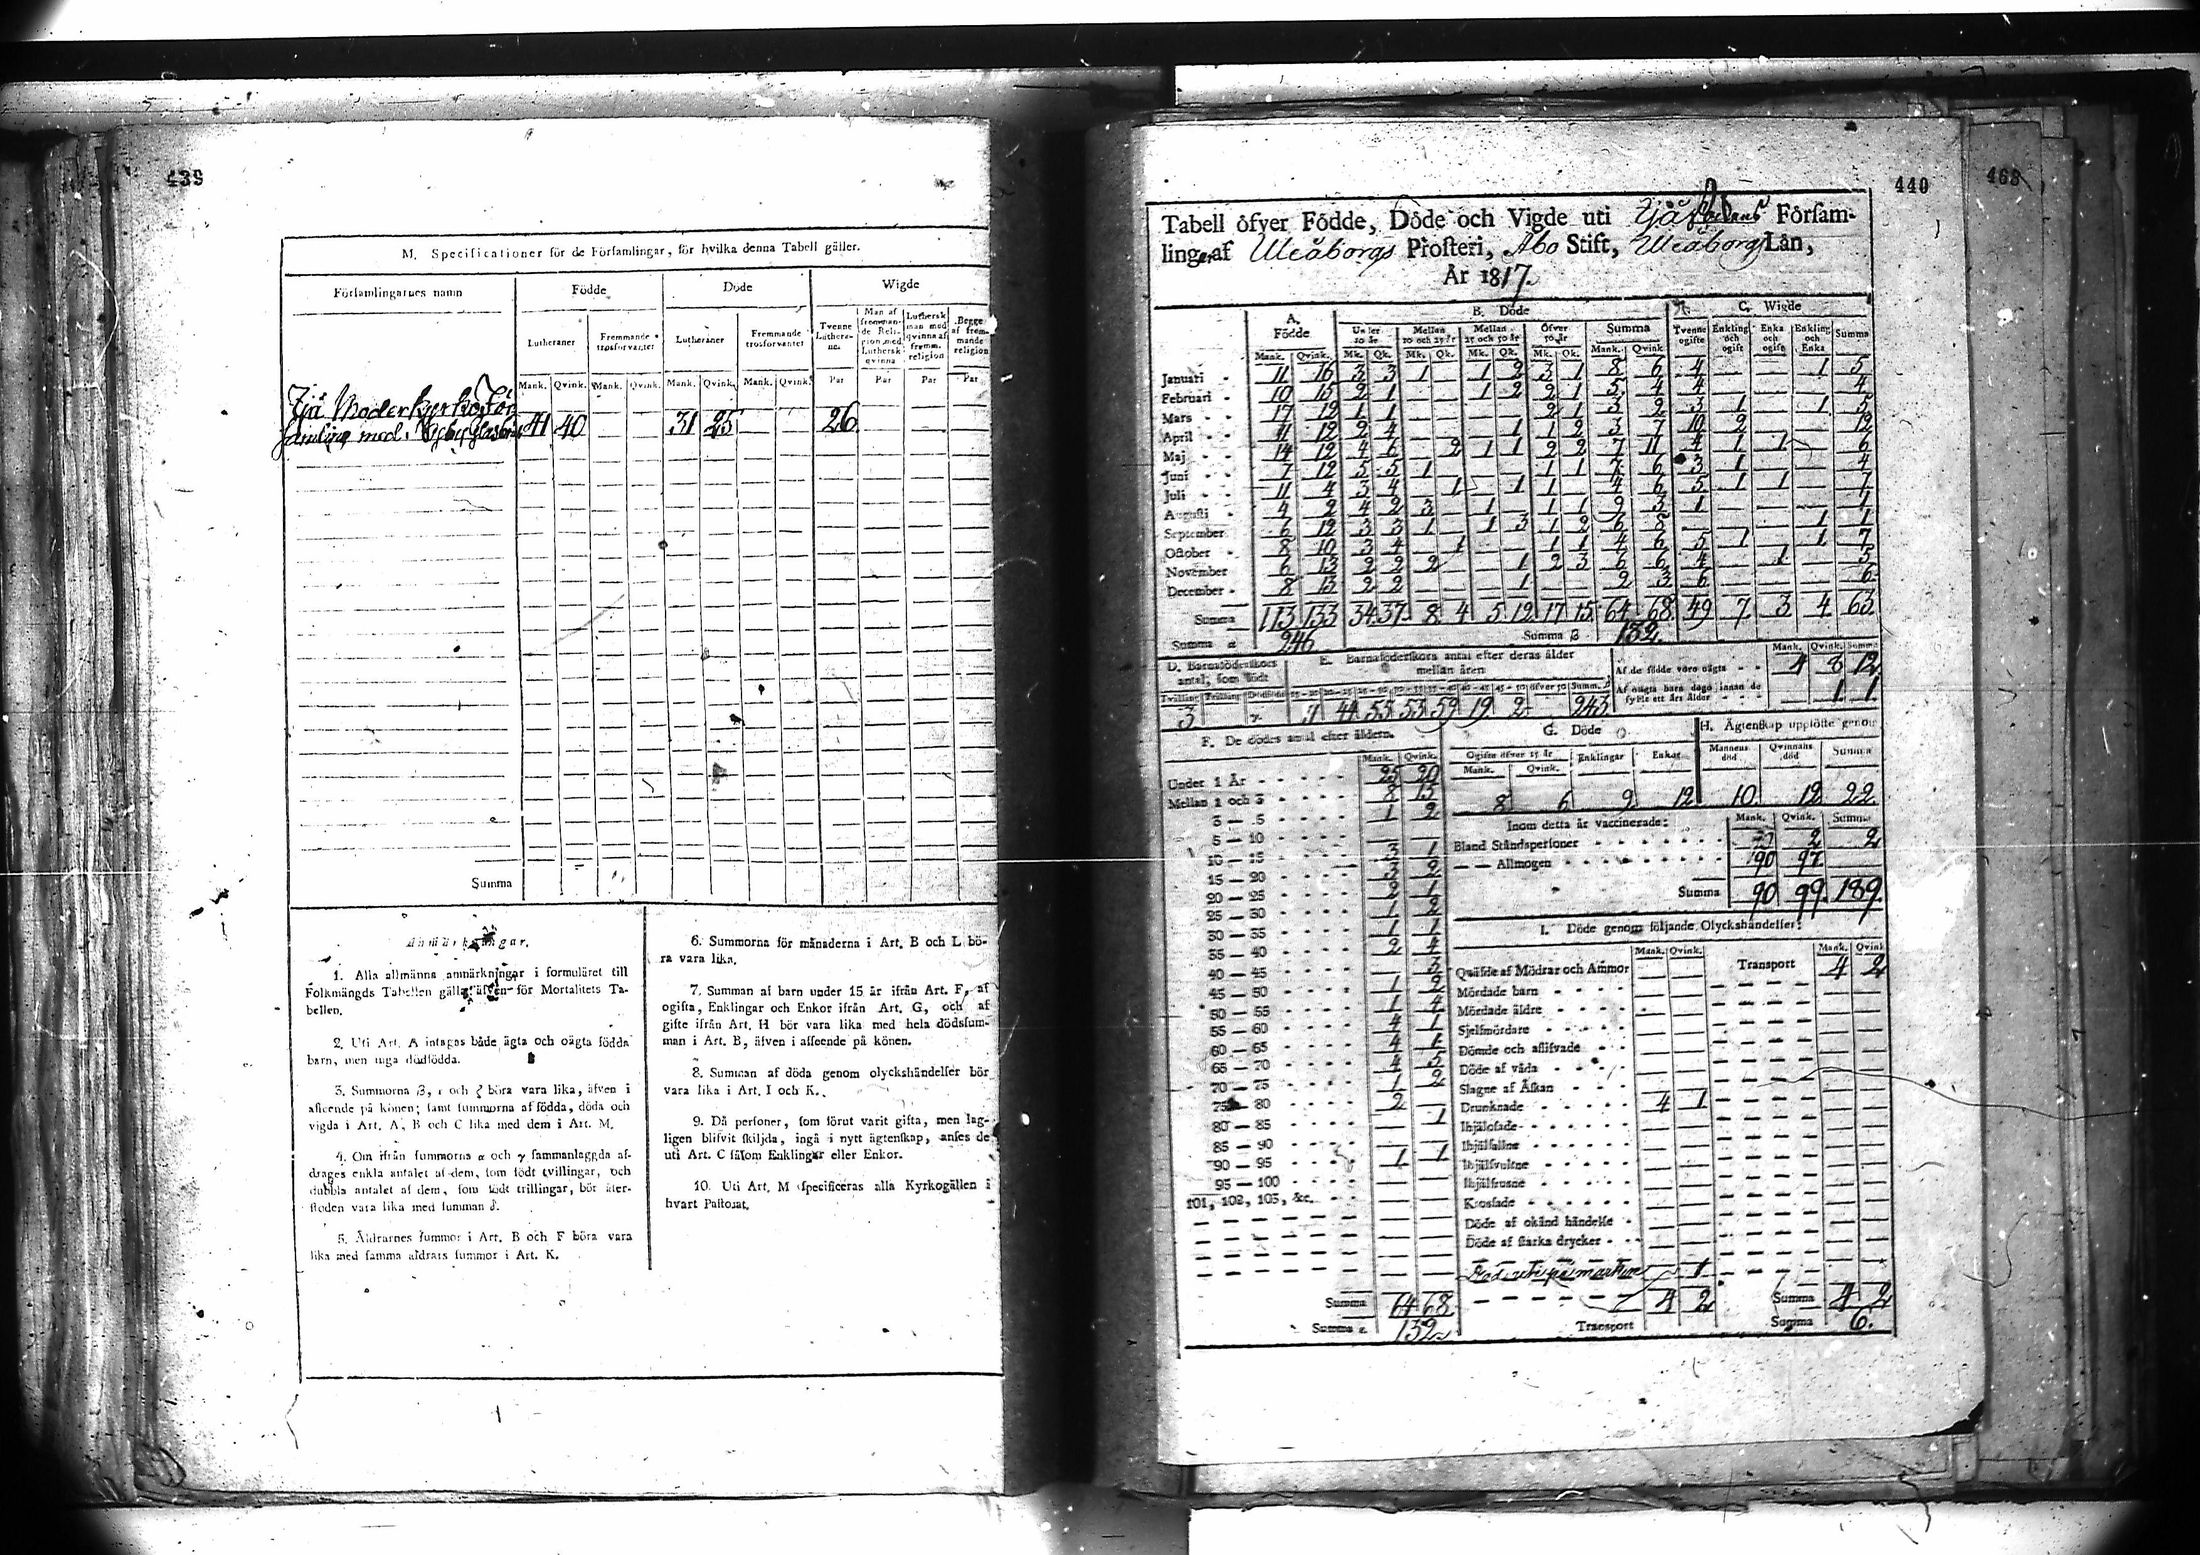 439
M. Specificationer för de Församlingar, för hvilka denna Tabell gäller.
Församlingarnes namn
Födde
Döde
Wigde
Lutheraner
Fremmande trosförvanter
Lutheraner
Fremmande trosförvanter
Tvenne Lutheraner.
Man af fremmande Religion med Luthersk qvinna
Luthersk man med qvinna af fremm. religion
Begge af fremmande religion
Mank. Qvink. Mank. Qvink. Mank. Qvink. Mank. Qvink. Par Par Par Par
Ijå Moderkyrko För
samling med 41 40 31 25 26
Summa
Anmärkningar.
1. Alla allmänna anmärkningar i formuläret till
Folkmängds Tabellen gälla äfven för Mortalitets Ta-
bellen.
2. Uti Art. A intagas både ägta och oägta födda
barn, men inga dödfödda.
3. Summorna β, ε och ζ böra vara lika, äfven i
afseende på könen; samt summorna af födda, döda och
vigda i Art. A, B och C lika med dem i Art. M.
4. Om ifrån summorna α och γ sammanlagda af-
drages enkla antalet af dem, som födt tvillingar, och
dubbla antalet af dem, som födt trillingar, bör åter-
stoden vara lika med summan δ.
5. Åldrarnes summor i Art. B och F böra vara
lika med samma åldrars summor i Art. K.
6. Summorna för månaderna i Art. B och L bö-
ra vara lika.
7. Summan af barn under 15 år ifrån Art. F, af
ogifta, Enklingar och Enkor ifrån Art. G, och af
gifte ifrån Art. H bör vara lika med hela dödssum-
man i Art. B, äfven i afseende på könen.
8. Summan af döda genom olyckshändelser bör
vara lika i Art. I och K.
9. Då personer, som förut varit gifta, men lag-
ligen blifvit skiljda, ingå i nytt ägtenskap, anses de
uti Art. C såsom Enklingar eller Enkor.
10. Uti Art. M specificeras alla Kyrkogällen i
hvart Pastorat.
440
468
Tabell öfver Födde, Döde och Vigde uti Ijå Församling
af Uleåborgs Prosteri, Åbo Stift, Uleåborgs Län,
År 1817.
A. Födde
B. Döde
C. Wigde
Under 10 år
Mellan 10 och 25 år
Mellan 25 och 50 år
Öfver 50 år
Summa
Tvenne ogifte
Enkling och ogift
Enka och ogift
Enkling och Enka
Summa
Mank. Qvink. Mk. Qk. Mk. Qk. Mk. Qk. Mk. Qk. Mank. Qvink
Januari 11 16 3 3 1 — 1 2 3 1 8 6 4 — — 1 5
Februari 10 15 2 1 — — 1 2 2 1 5 4 4 — — — 4
Mars 17 12 1 1 — — — — 2 1 3 2 3 1 — 1 5
April 11 12 2 4 — — — 1 1 2 3 7 10 2 — — 12
Maj 14 12 4 6 — 2 1 1 2 2 7 11 4 1 1 — 6
Juni 7 12 5 5 1 — — — 1 1 7 6 3 1 — — 4
Juli 11 4 3 4 — 1 — 1 1 — 4 6 5 1 1 — 7
Augusti 4 2 4 2 3 — 1 — 1 1 9 3 1 — — — 1
September 6 12 3 3 1 — 1 3 1 2 6 8 — — — 1 1
October 8 10 3 4 — 1 — — 1 1 4 6 5 1 — 1 7
November 6 13 2 2 2 — — 1 2 3 6 6 4 — 1 — 5
December 8 13 2 2 — — — 1 — — 2 3 6 — — — 6
Summa 113 133 34 37 8 4 5 12 17 15 64 68 49 7 3 4 63
Summa α 246 Summa β 132
D. Barnaföderskors antal, som födt
E. Barnaföderskors antal efter deras ålder mellan åren
Tvilling Trilling Dödfödde 15–20 20–25 25–30 30–35 35–40 40–45 45–50 öfver 50 Summ. δ
44 55 53 59 19 2 243
3
Mank. Qvink. Summa
Af de födde voro oägta 4 8 12
Af oägta barn dogo innan de fyllt ett års ålder 1 1
F. De dödes antal efter åldern.
Mank. Qvink.
Under 1 År 25 20
Mellan 1 och 3 8 15
3 — 5 1 2
5 — 10
10 — 15 3 1
15 — 20 3 2
20 — 25 2 1
25 — 30 1 2
30 — 35 1 1
35 — 40 2 4
40 — 45 — 3
45 — 50 1 2
50 — 55 1 4
55 — 60 4 1
60 — 65 4 1
65 — 70 4 5
70 — 75 1 2
75 — 80 2 —
80 — 85 — 1
85 — 90
90 — 95 1 1
95 — 100
101, 102, 103, &c.
Summa 64 68
Summa ε. 132.
G. Döde
Ogifte öfver 15 år
Enklingar
Enkor
Mank. Qvink.
8 6 9 12
H. Ägtenskap upplöste genom
Mannens död
Qvinnans död
Summa
10 12 22
Inom detta år vaccinerade: Mank. Qvink. Summa
Bland Ståndspersoner 2 2
— — Allmogen 90 97
Summa 90 99 189
I. Döde genom följande Olyckshändelser:
Mank. Qvink.
Mank. Qvink
Qväfde af Mödrar och Ammor
Transport 4 2
Mördade barn
Mördade äldre
Sjelfmördare
Dömde och aflifvade
Döde af våda
Slagne af Åskan
Drunknade 4 1
Ihjälosade
Ihjälfallne
Ihjälsvultne
Ihjälfrusne
Krossade
Döde af okänd händelse
Döde af starka drycker
på marken 1
4 2
Summa 4 2
Transport
Summa 6.